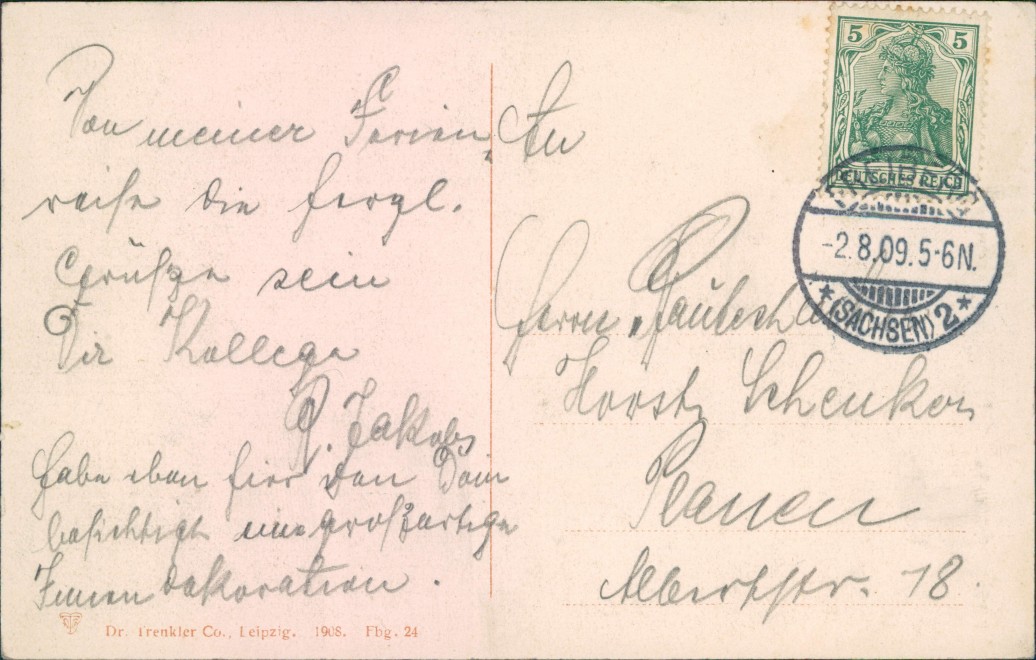 Von meiner Ferien-
reise die herzl.
Grüße sein
Dir Kollege
R. Jakobs
Habe eben hier den Dom
besichtigt eine großartige
Innendekoration.
Dr. Trenkler Co., Leipzig. 1908. Fbg. 24
An
Herrn
Horst Schenker
Plauen
Albertstr. 18.
5 5
DEUTSCHES REICH
-2.8.09.5-6N.
*(SACHSEN) 2*